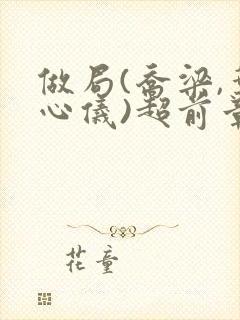 做局(喬梁,
心儀)超前
花童